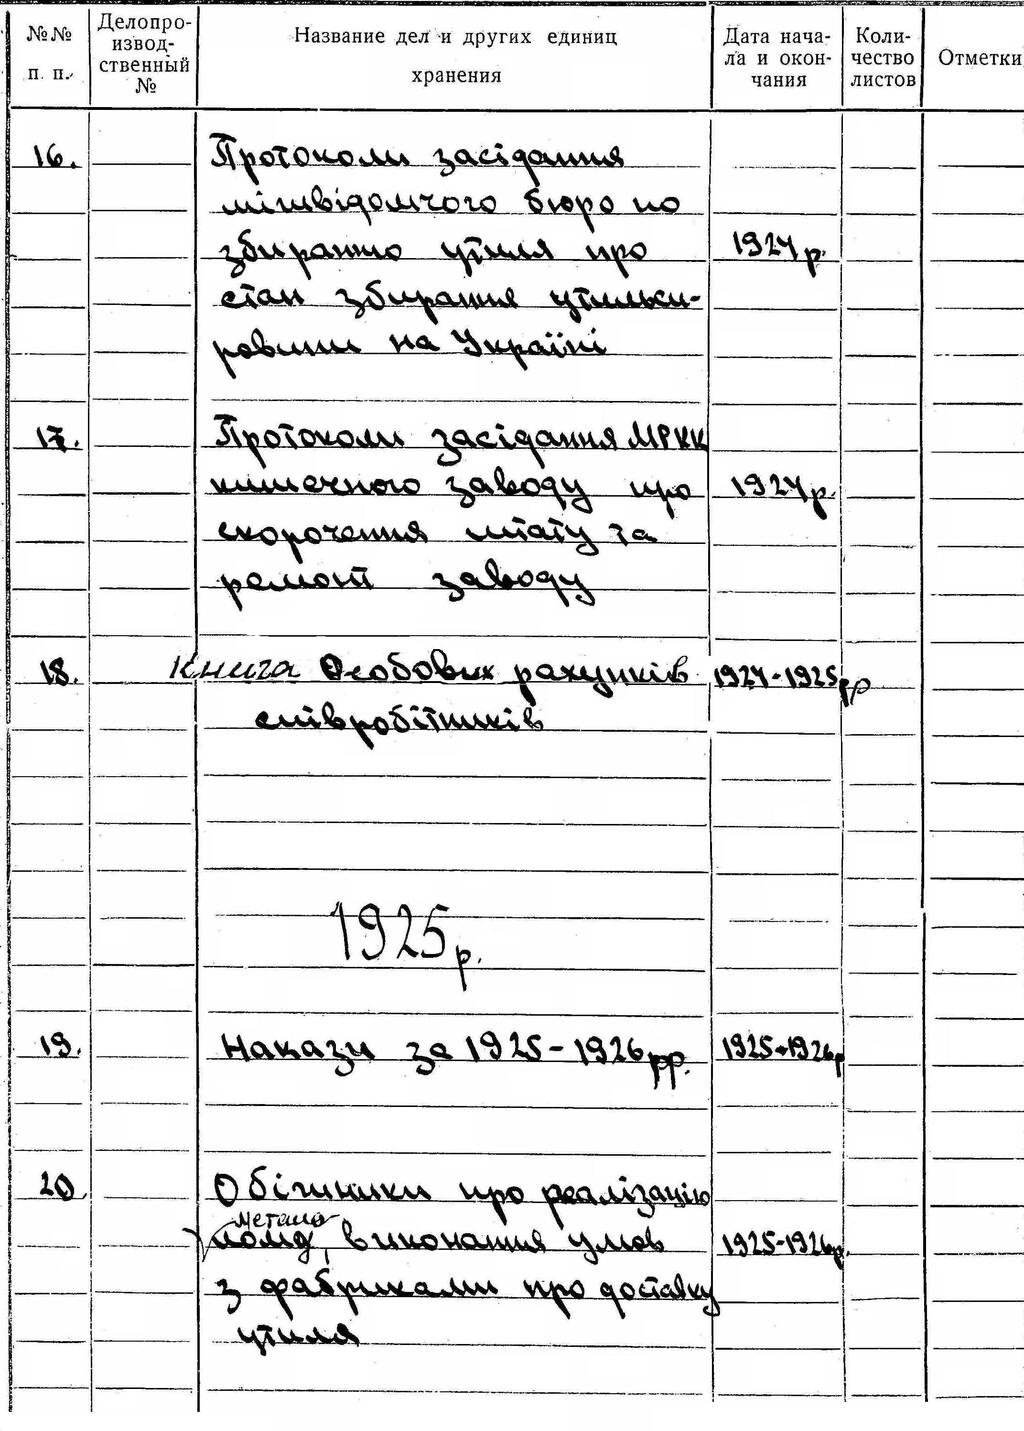 №№ п. п.
Делопро-
извод-
ственный
№
Название дел и других единиц
хранения
Дата нача-
ла и окон-
чания
Коли-
чество
листов
Отметки
16.
Протоколи засідання
міжвідомчого бюро по
збиранню утиля про
1924 р.
стан збирання утильси-
ровини на Україні
17.
Протоколи засідання МРКК
кишечного заводу про
1924 р.
скорочення штату та
ремонт заводу
18. Книга Особових рахунків 1924-1925 рр
співробітників
1925 р.
19. Накази за 1925-1926 рр. 1925-1926 р
20. Обіжники про реалізацію
метало
лому, виконання умов 1925-1926 р.
з фабриками про доставку
утиля